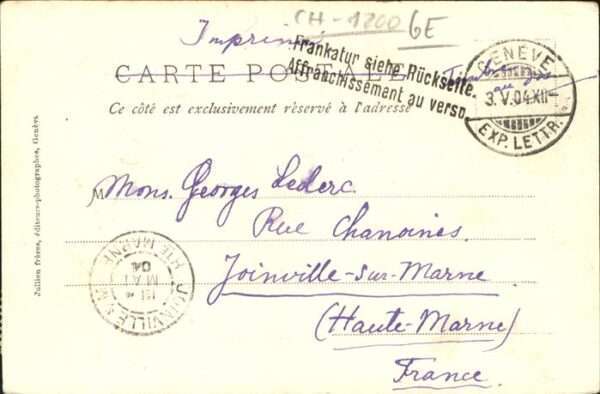 CH-1200 GE
Imprimé
Frankatur siehe Rückseite.
Affranchissement au verso.
CARTE POSTALE
Timbre
au dos
Ce côté est exclusivement réservé à l'adresse
GENÈVE
3.V.04.XII-
EXP. LETTR.
Mons. Georges Leclerc
Rue Chanoines.
Joinville-sur-Marne
(Haute-Marne)
France.
JOINVILLE
HTE MARNE
MAI
04
Jullien frères, éditeurs-photographes, Genève